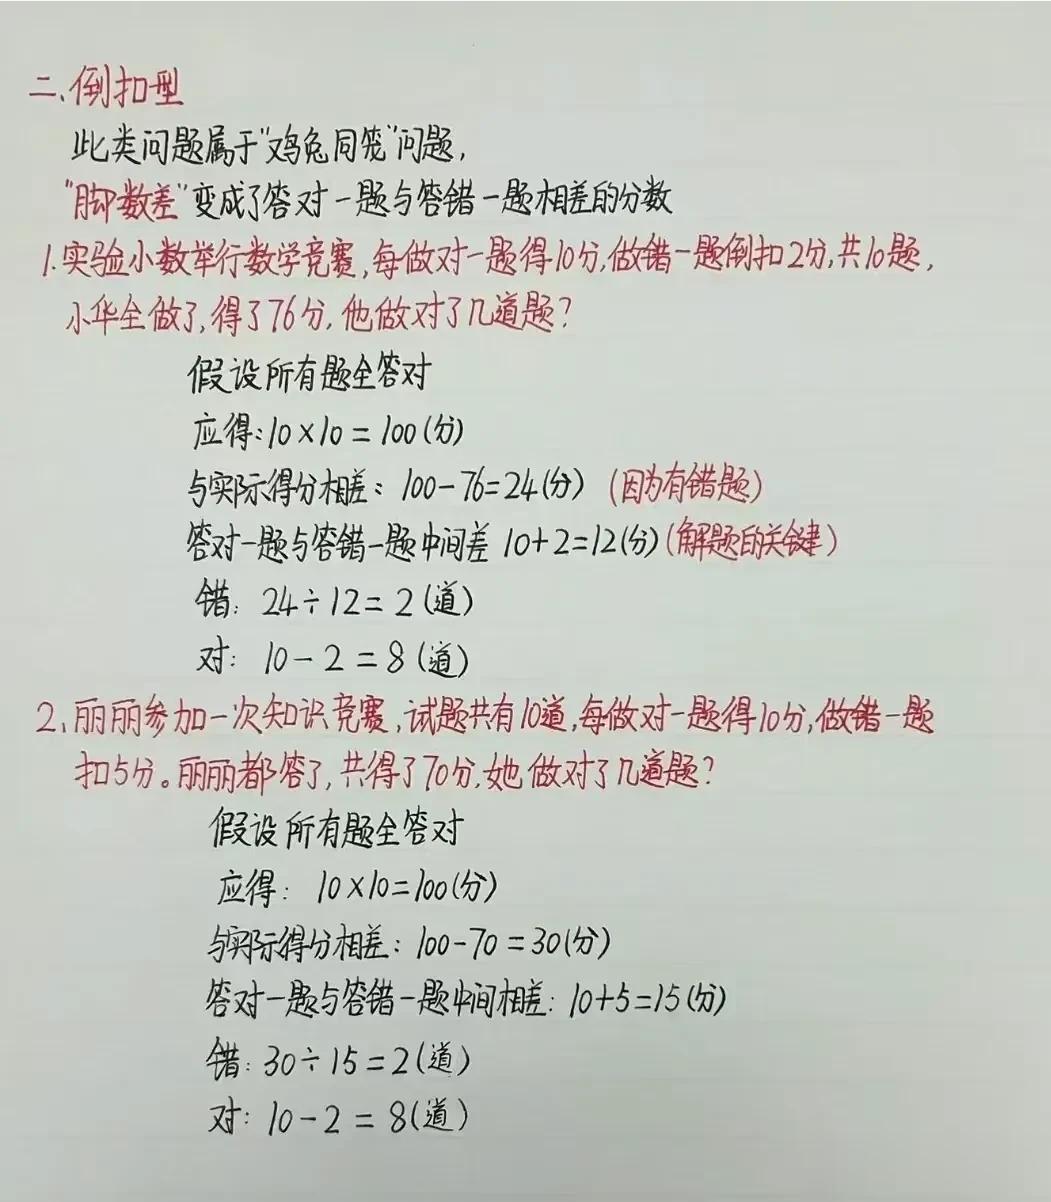 二、倒扣型
此类问题属于"鸡兔同笼"问题，
"脚数差"变成了答对一题与答错一题相差的分数
1.实验小数举行数学竞赛,每做对一题得10分,做错一题倒扣2分,共10题,
小华全做了,得了76分,他做对了几道题?
假设所有题全答对
应得:10×10=100(分)
与实际得分相差: 100-76=24(分) (因为有错题)
答对一题与答错一题中间差 10+2=12(分)(解题的关键)
错: 24÷12=2(道)
对: 10-2=8(道)
2、丽丽参加一次知识竞赛,试题共有10道,每做对一题得10分,做错一题
扣5分。丽丽都答了,共得了70分,她做对了几道题?
假设所有题全答对
应得: 10×10=100(分)
与实际得分相差: 100-70=30(分)
答对一题与答错一题中间相差: 10+5=15(分)
错: 30÷15=2(道)
对: 10-2=8(道)